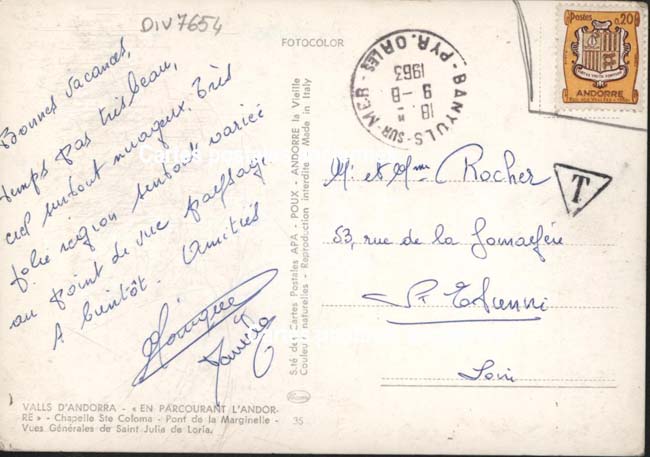 DIV7654
Bonnes vacances,
temps pas très beau,
ciel surtout nuageux. Très
jolie région surtout variée
au point de vue paysage.
A bientôt. Amitiés
Monique
FOTOCOLOR
S.té des Cartes Postales APA - POUX - ANDORRE la Vieille
Couleurs naturelles - Reproduction interdite - Made in Italy
Cartes
VALLS D'ANDORRA - « EN PARCOURANT L'ANDOR-
RE » - Chapelle Ste Coloma - Pont de la Marginelle -
Vues Générales de Saint Julia de Loria.
35
BANYULS-SUR-MER
PYR. ORLES
18 H
9 - 8
1963
Postes 0,20
ANDORRE
T
Mr et Mme Rocher
53, rue de la
St Etienne
Loire